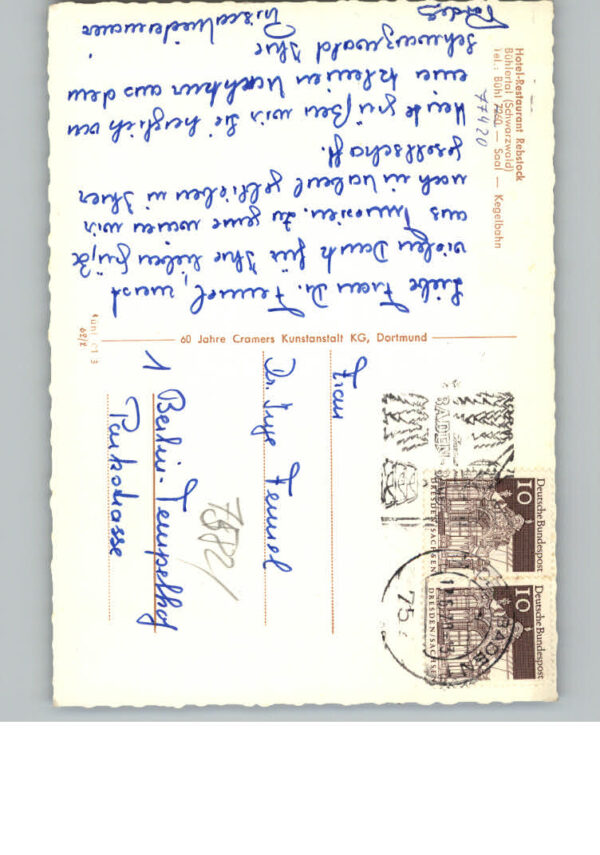 Hotel-Restaurant Rebstock
Bühlertal (Schwarzwald)
Tel.: Bühl 7260 — Saal — Kegelbahn
77420
Liebe Frau Dr. Fennel, zuerst
vielen Dank für Ihre lieben Grüße
aus Tunesien. Zu gerne wären wir
noch in Nabeul geblieben in Ihrer
Gesellschaft.
Heute grüßen wir Sie herzlich von
einer kleinen Nachkur aus dem
Schwarzwald Ihre
60 Jahre Cramers Kunstanstalt KG, Dortmund
Frau
Dr. Inge Fennel
1 Berlin-Tempelhof
Parkstrasse
7582/
Deutsche Bundespost
10
DRESDEN/SACHSEN
Deutsche Bundespost
10
DRESDEN/SACHSEN
BADEN-
75
BADEN